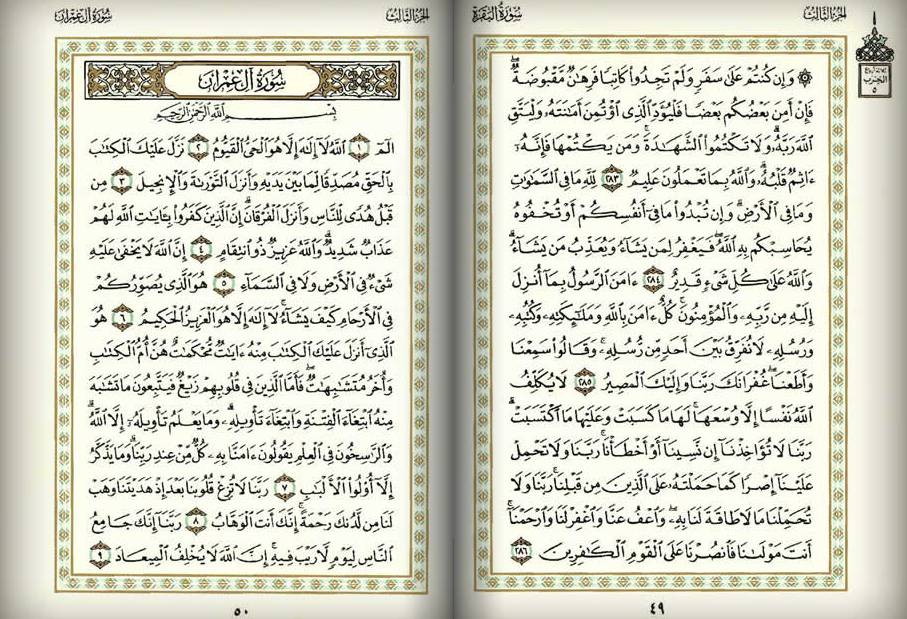 الجزء الثالث
سورة البقرة
الحزب
٥
۞ وَإِن كُنتُمْ عَلَىٰ سَفَرٍ وَلَمْ تَجِدُوا۟ كَاتِبًا فَرِهَٰنٌ مَّقْبُوضَةٌ ۖ
فَإِنْ أَمِنَ بَعْضُكُم بَعْضًا فَلْيُؤَدِّ ٱلَّذِى ٱؤْتُمِنَ أَمَٰنَتَهُۥ وَلْيَتَّقِ
ٱللَّهَ رَبَّهُۥ ۗ وَلَا تَكْتُمُوا۟ ٱلشَّهَٰدَةَ ۚ وَمَن يَكْتُمْهَا فَإِنَّهُۥٓ
ءَاثِمٌ قَلْبُهُۥ ۗ وَٱللَّهُ بِمَا تَعْمَلُونَ عَلِيمٌ ٢٨٣ لِّلَّهِ مَا فِى ٱلسَّمَٰوَٰتِ
وَمَا فِى ٱلْأَرْضِ ۗ وَإِن تُبْدُوا۟ مَا فِىٓ أَنفُسِكُمْ أَوْ تُخْفُوهُ
يُحَاسِبْكُم بِهِ ٱللَّهُ ۖ فَيَغْفِرُ لِمَن يَشَآءُ وَيُعَذِّبُ مَن يَشَآءُ ۗ
وَٱللَّهُ عَلَىٰ كُلِّ شَىْءٍ قَدِيرٌ ٢٨٤ ءَامَنَ ٱلرَّسُولُ بِمَآ أُنزِلَ
إِلَيْهِ مِن رَّبِّهِۦ وَٱلْمُؤْمِنُونَ ۚ كُلٌّ ءَامَنَ بِٱللَّهِ وَمَلَٰٓئِكَتِهِۦ وَكُتُبِهِۦ
وَرُسُلِهِۦ لَا نُفَرِّقُ بَيْنَ أَحَدٍ مِّن رُّسُلِهِۦ ۚ وَقَالُوا۟ سَمِعْنَا
وَأَطَعْنَا ۖ غُفْرَانَكَ رَبَّنَا وَإِلَيْكَ ٱلْمَصِيرُ ٢٨٥ لَا يُكَلِّفُ
ٱللَّهُ نَفْسًا إِلَّا وُسْعَهَا ۚ لَهَا مَا كَسَبَتْ وَعَلَيْهَا مَا ٱكْتَسَبَتْ ۗ
رَبَّنَا لَا تُؤَاخِذْنَآ إِن نَّسِينَآ أَوْ أَخْطَأْنَا ۚ رَبَّنَا وَلَا تَحْمِلْ
عَلَيْنَآ إِصْرًا كَمَا حَمَلْتَهُۥ عَلَى ٱلَّذِينَ مِن قَبْلِنَا ۚ رَبَّنَا وَلَا
تُحَمِّلْنَا مَا لَا طَاقَةَ لَنَا بِهِۦ ۖ وَٱعْفُ عَنَّا وَٱغْفِرْ لَنَا وَٱرْحَمْنَآ ۚ
أَنتَ مَوْلَىٰنَا فَٱنصُرْنَا عَلَى ٱلْقَوْمِ ٱلْكَٰفِرِينَ ٢٨٦
٤٩
الجزء الثالث
سورة آل عمران
سورة آل عمران
بِسْمِ ٱللَّهِ ٱلرَّحْمَٰنِ ٱلرَّحِيمِ
الٓمٓ ١ ٱللَّهُ لَآ إِلَٰهَ إِلَّا هُوَ ٱلْحَىُّ ٱلْقَيُّومُ ٢ نَزَّلَ عَلَيْكَ ٱلْكِتَٰبَ
بِٱلْحَقِّ مُصَدِّقًا لِّمَا بَيْنَ يَدَيْهِ وَأَنزَلَ ٱلتَّوْرَىٰةَ وَٱلْإِنجِيلَ ٣ مِن
قَبْلُ هُدًى لِّلنَّاسِ وَأَنزَلَ ٱلْفُرْقَانَ ۗ إِنَّ ٱلَّذِينَ كَفَرُوا۟ بِـَٔايَٰتِ ٱللَّهِ لَهُمْ
عَذَابٌ شَدِيدٌ ۗ وَٱللَّهُ عَزِيزٌ ذُو ٱنتِقَامٍ ٤ إِنَّ ٱللَّهَ لَا يَخْفَىٰ عَلَيْهِ
شَىْءٌ فِى ٱلْأَرْضِ وَلَا فِى ٱلسَّمَآءِ ٥ هُوَ ٱلَّذِى يُصَوِّرُكُمْ
فِى ٱلْأَرْحَامِ كَيْفَ يَشَآءُ ۚ لَآ إِلَٰهَ إِلَّا هُوَ ٱلْعَزِيزُ ٱلْحَكِيمُ ٦ هُوَ
ٱلَّذِىٓ أَنزَلَ عَلَيْكَ ٱلْكِتَٰبَ مِنْهُ ءَايَٰتٌ مُّحْكَمَٰتٌ هُنَّ أُمُّ ٱلْكِتَٰبِ
وَأُخَرُ مُتَشَٰبِهَٰتٌ ۖ فَأَمَّا ٱلَّذِينَ فِى قُلُوبِهِمْ زَيْغٌ فَيَتَّبِعُونَ مَا تَشَٰبَهَ
مِنْهُ ٱبْتِغَآءَ ٱلْفِتْنَةِ وَٱبْتِغَآءَ تَأْوِيلِهِۦ ۗ وَمَا يَعْلَمُ تَأْوِيلَهُۥٓ إِلَّا ٱللَّهُ ۗ
وَٱلرَّٰسِخُونَ فِى ٱلْعِلْمِ يَقُولُونَ ءَامَنَّا بِهِۦ كُلٌّ مِّنْ عِندِ رَبِّنَا ۗ وَمَا يَذَّكَّرُ
إِلَّآ أُو۟لُوا۟ ٱلْأَلْبَٰبِ ٧ رَبَّنَا لَا تُزِغْ قُلُوبَنَا بَعْدَ إِذْ هَدَيْتَنَا وَهَبْ
لَنَا مِن لَّدُنكَ رَحْمَةً ۚ إِنَّكَ أَنتَ ٱلْوَهَّابُ ٨ رَبَّنَآ إِنَّكَ جَامِعُ
ٱلنَّاسِ لِيَوْمٍ لَّا رَيْبَ فِيهِ ۚ إِنَّ ٱللَّهَ لَا يُخْلِفُ ٱلْمِيعَادَ ٩
٥٠